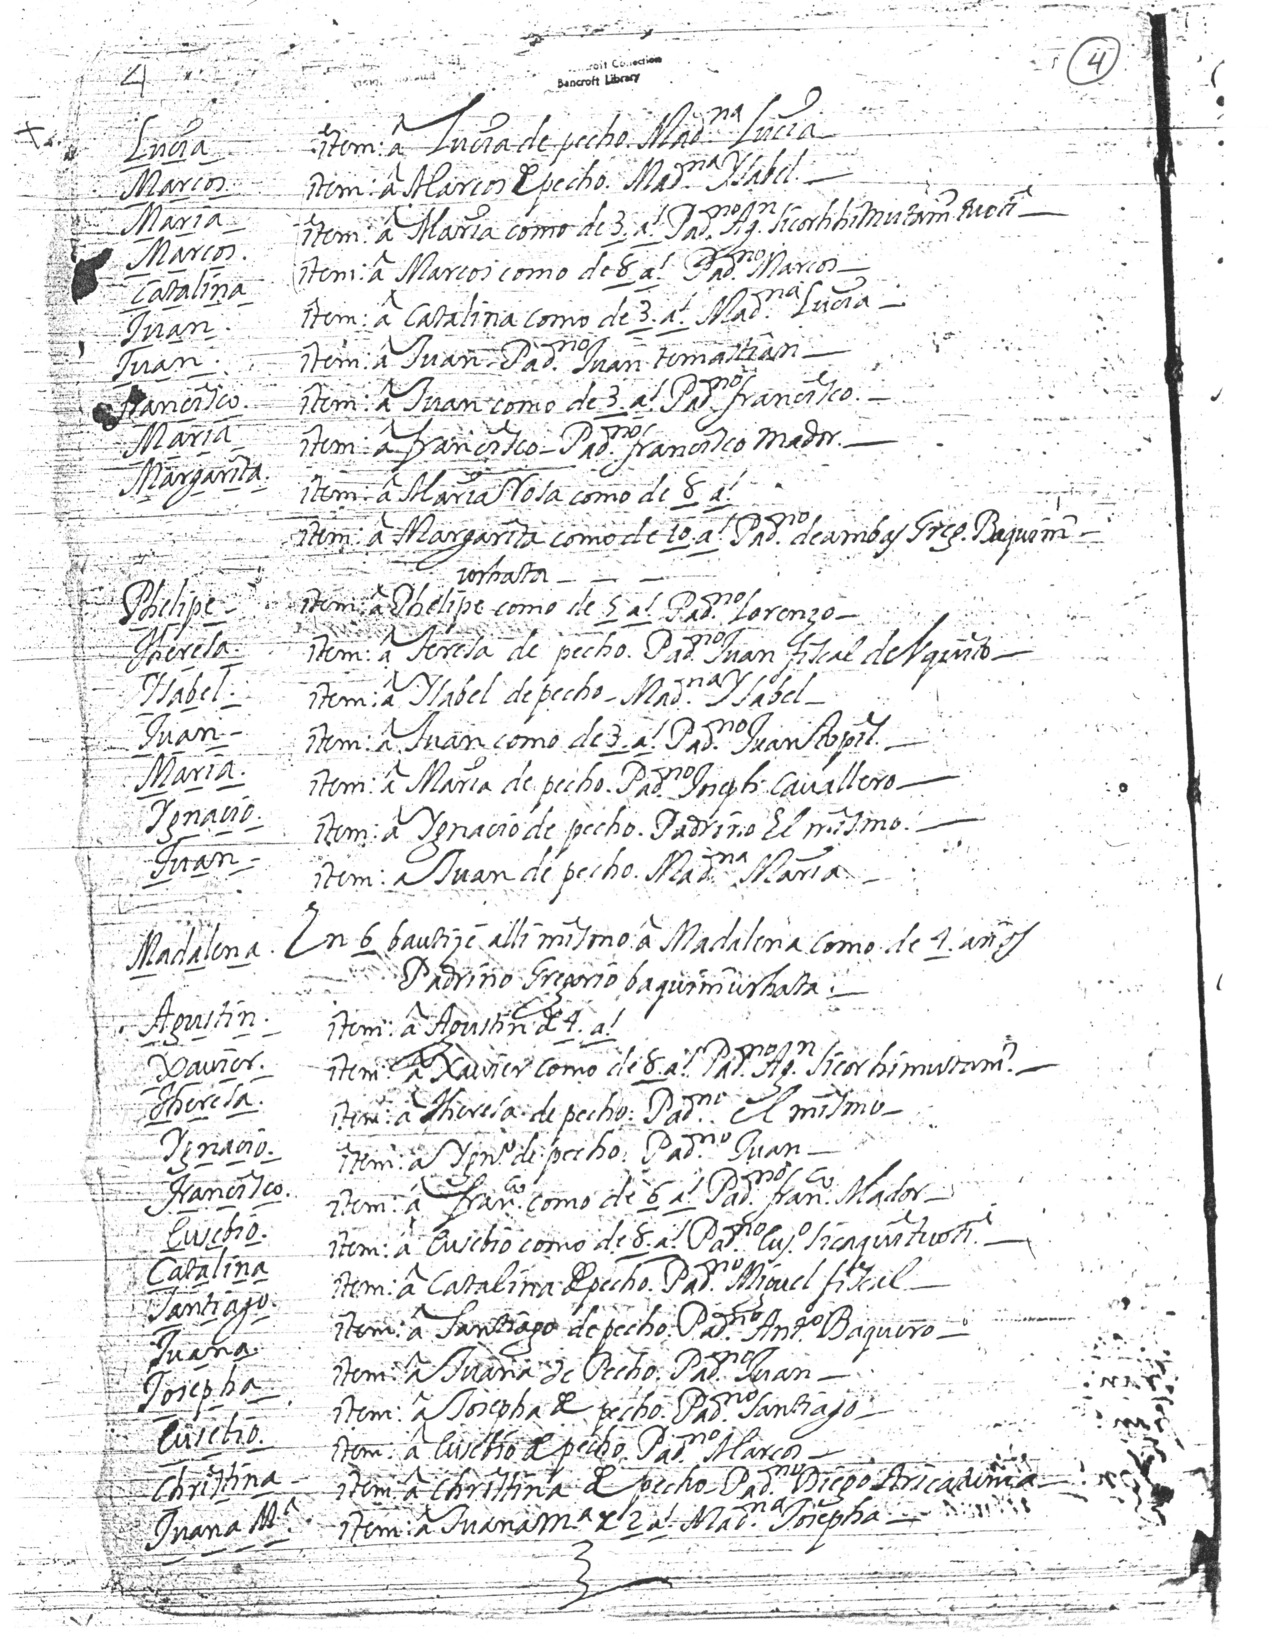 4
4
Bancroft Collection
Bancroft Library
Lucia item: â Lucia de pecho. Mad.na Lucia
Marcos. item: â Marcos de pecho. Mad.na Ysabel. —
Maria item: â Maria como de 3. a.s Pad.no Ag.n
Marcos. item: â Marcos como de 8. a.s Pad.no Marcos —
Catalina item: â Catalina como de 3. a.s Mad.na Lucia —
Juan. item: â Juan. Pad.no Juan temastian —
Juan. item: â Juan como de 3. a.s Pad.no francisco. —
francisco. item: â francisco — Pad.no francisco Mador. —
Maria item: â Maria Rosa como de 8 a.s
Margarita. item: â Margarita como de 10. a.s Pad.no de ambas Greg.o Baquim
urhata — — —
Phelipe — item: â Phelipe como de 5 a.s Pad.no Lorenzo —
Theresa. item: â Teresa de pecho. Pad.no Juan fiscal de
Ysabel. item: â Ysabel de pecho — Mad.na Ysabel —
Juan — item: â Juan como de 3. a.s Pad.no Juan
Maria. item: â Maria de pecho. Pad.no Joseph cavallero —
Ygnacio. item: â Ygnacio de pecho. Padrino El mismo. —
Juan — item: a Juan de pecho. Mad.na Maria —
Madalena. En 6 bautize alli mismo â Madalena como de 4 años
Padrino Gregorio baquimurhata. —
Agustin. item: â Agustin de 4. a.s
Xavier. item: â Xavier como de 8. a.s Pad.no Ag.n
Theresa. item: â Theresa de pecho. Pad.no el mismo —
Ygnacio. item: â Ygn.o de pecho. Pad.no Juan —
Francisco. item: â fran.co como de 6 a.s Pad.no fran.co Mador —
Eusebio. item: â Eusebio como de 8. a.s Pad.no Eus.o
Catalina item: â Catalina de pecho. Pad.no Miguel fiscal —
Santiago. item: â Santiago de pecho. Pad.no Ant.o Baquero —
Juana. item: â Juana de Pecho. Pad.no Juan —
Josepha item: â Josepha de pecho. Pad.no Santiago —
Eusebio. item: â Eusebio de pecho. Pad.no Marcos —
Christina — item: â Christina de pecho Pad.no Diego
Juana M.a item: â Juana M.a de 2 a.s Mad.na Josepha —